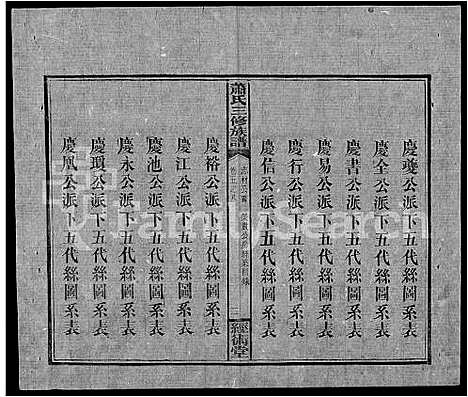 慶夔公派下五代絲圖系表
慶全公派下五代絲圖系表
慶書公派下五代絲圖系表
慶易公派下五代絲圖系表
慶行公派下五代絲圖系表
慶信公派下五代絲圖系表
蕭氏三修族譜
經術堂
慶裕公派下五代絲圖系表
慶江公派下五代絲圖系表
慶池公派下五代絲圖系表
慶永公派下五代絲圖系表
慶瓊公派下五代絲圖系表
慶凰公派下五代絲圖系表
FamilySearch